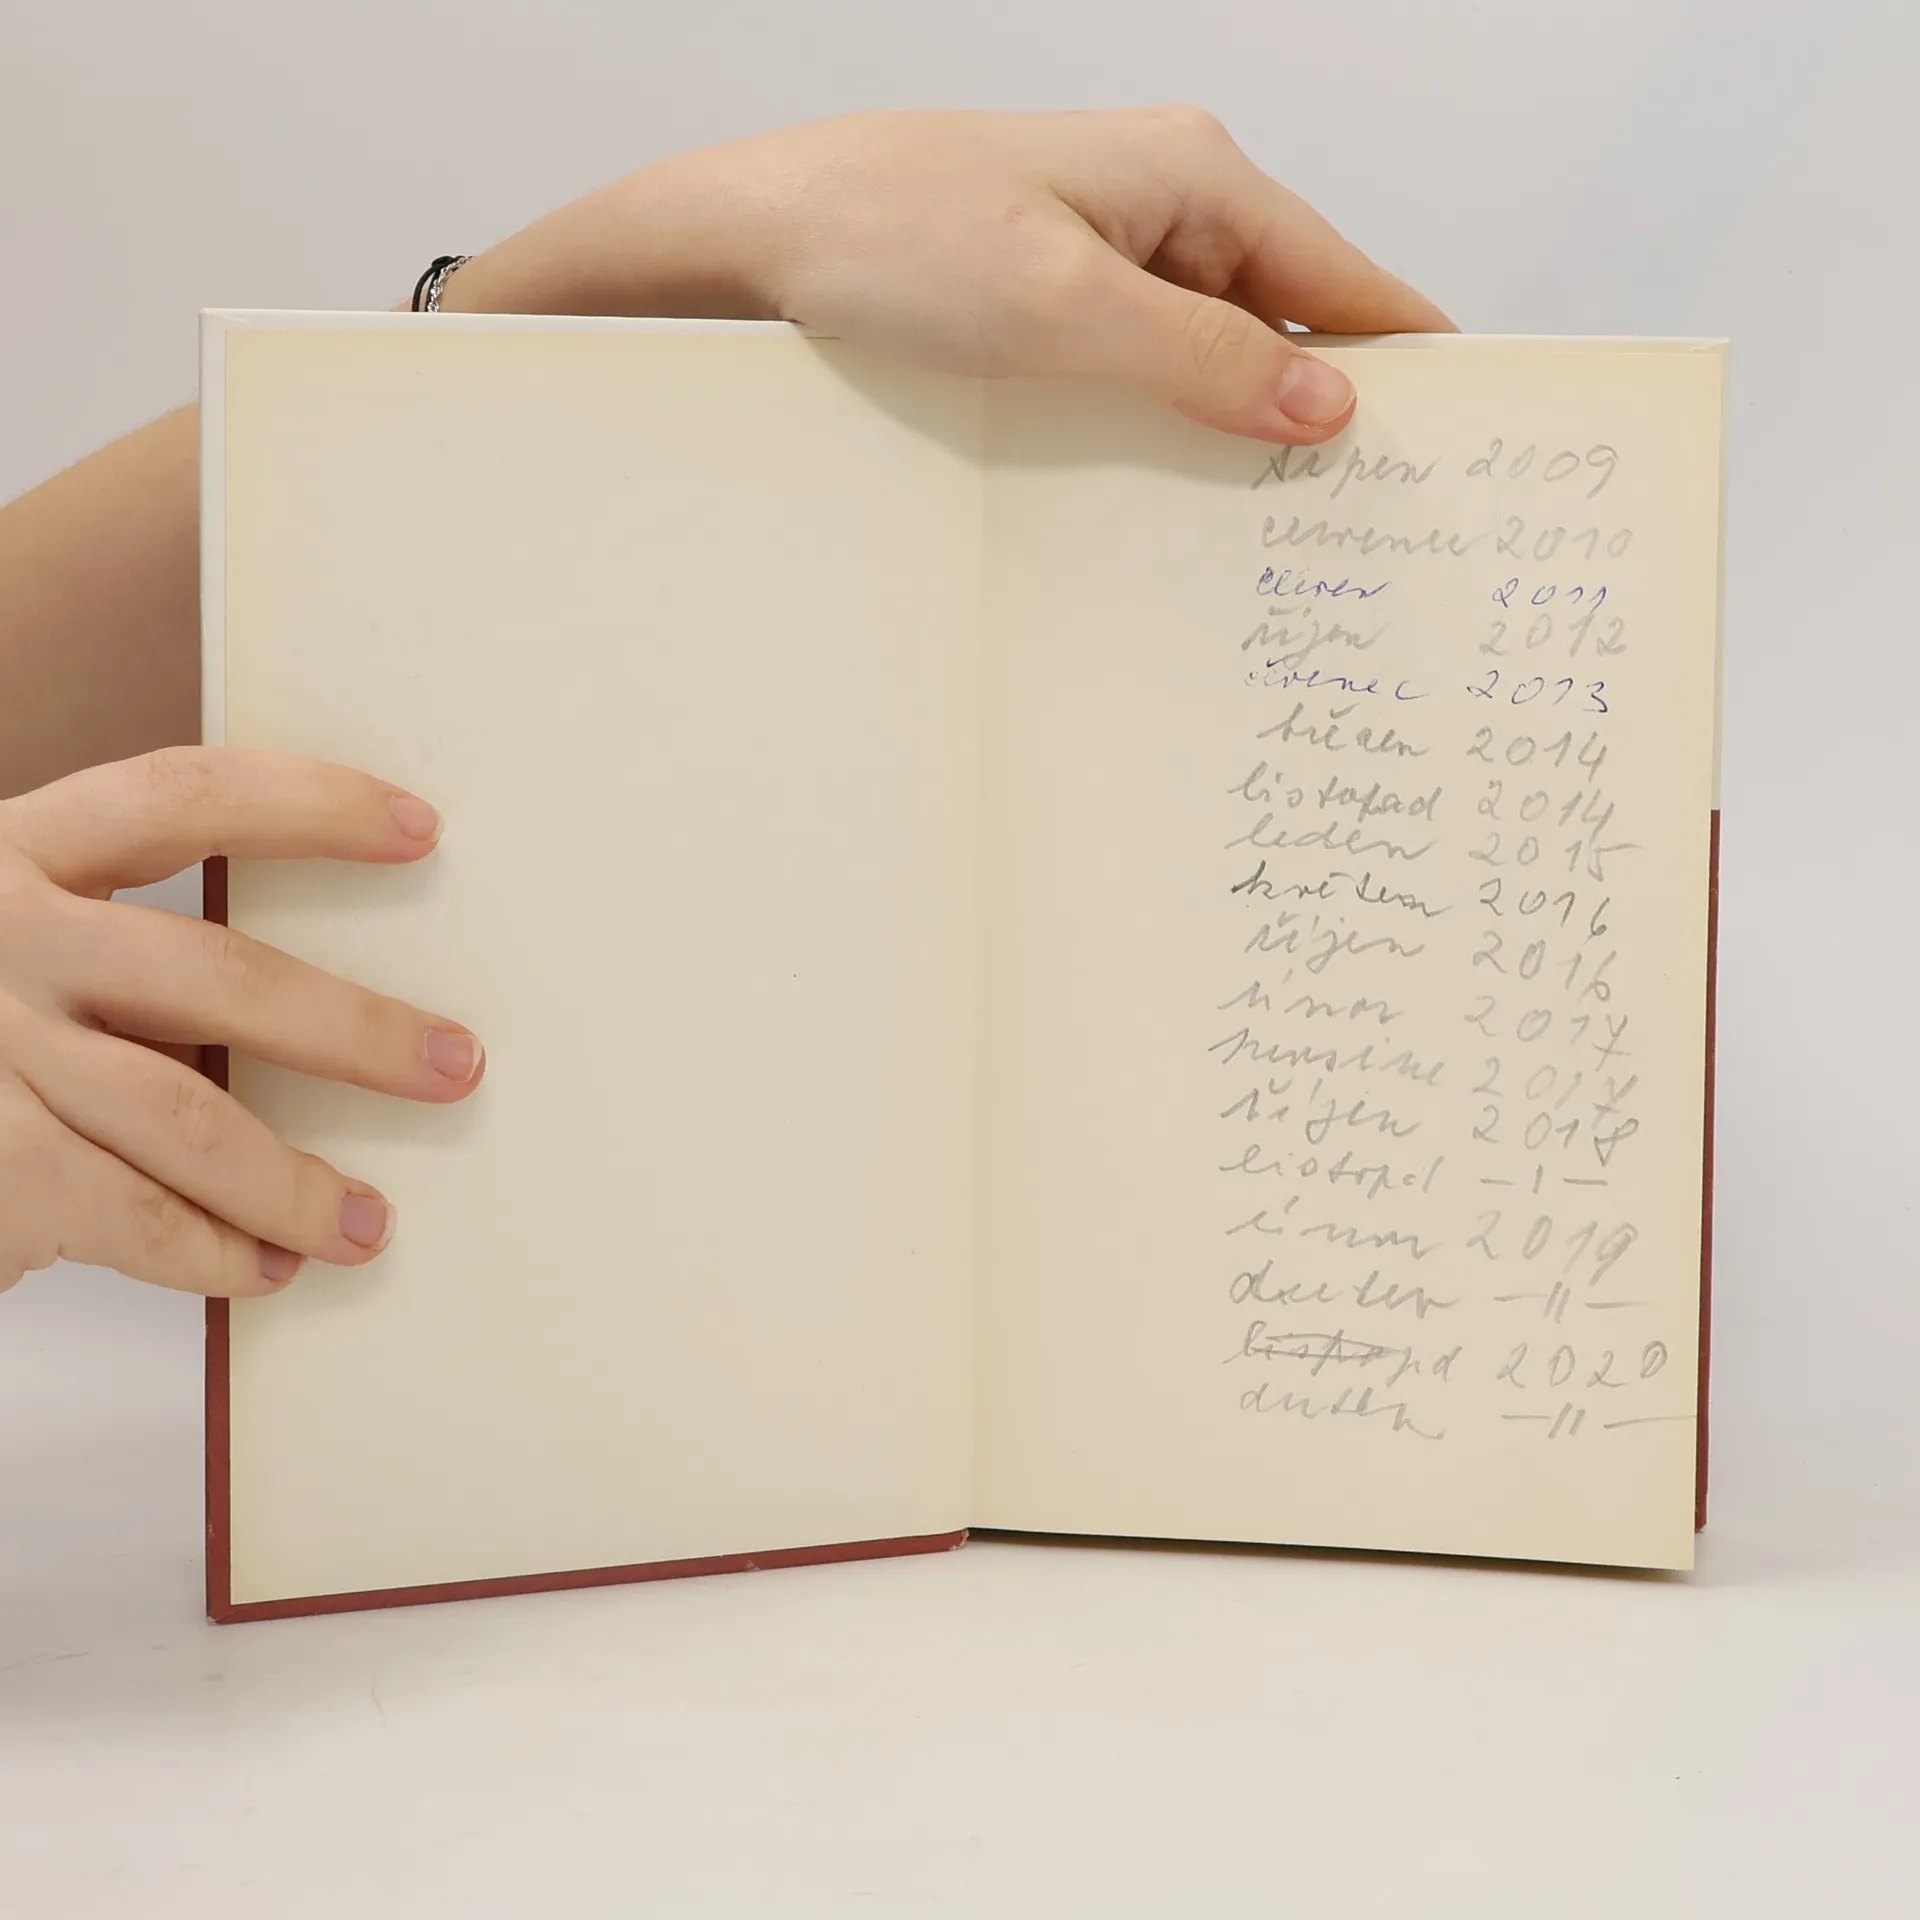 srpen 2009
červenec 2010
červen 2011
říjen 2012
červenec 2013
březen 2014
listopad 2014
leden 2015
květen 2016
říjen 2016
únor 2017
2017
říjen 2018
listopd —ı—
únor 2019
duben —ıı—
listopd 2020
duben —ıı—